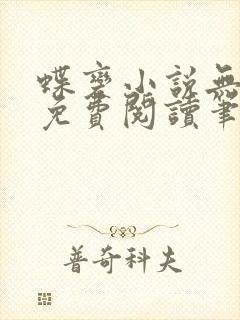 蝶變小說無
免費閱讀筆
普奇科夫